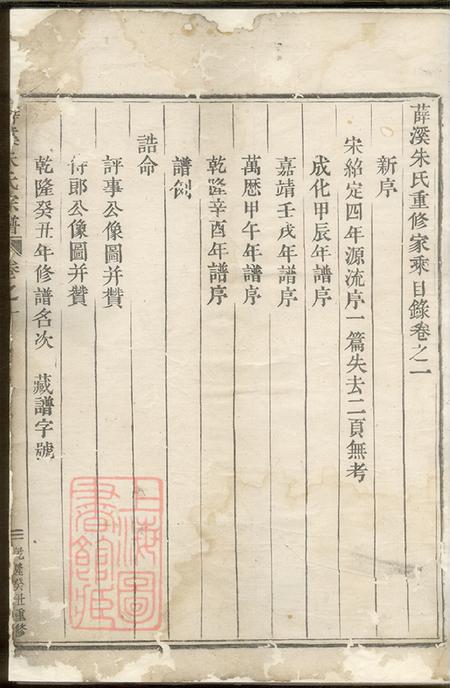 薛溪朱氏重修家乘目錄卷之一
新序
宋紹定四年源流序一篇失去二頁無考
成化甲辰年譜序
嘉靖壬戌年譜序
萬曆甲午年譜序
乾隆辛酉年譜序
譜例
誥命
評事公像圖并贊
侍郎公像圖并贊
乾隆癸丑年修譜名次 藏譜字號
朱氏宗譜 卷之一
乾隆癸丑重修
上海圖書館藏